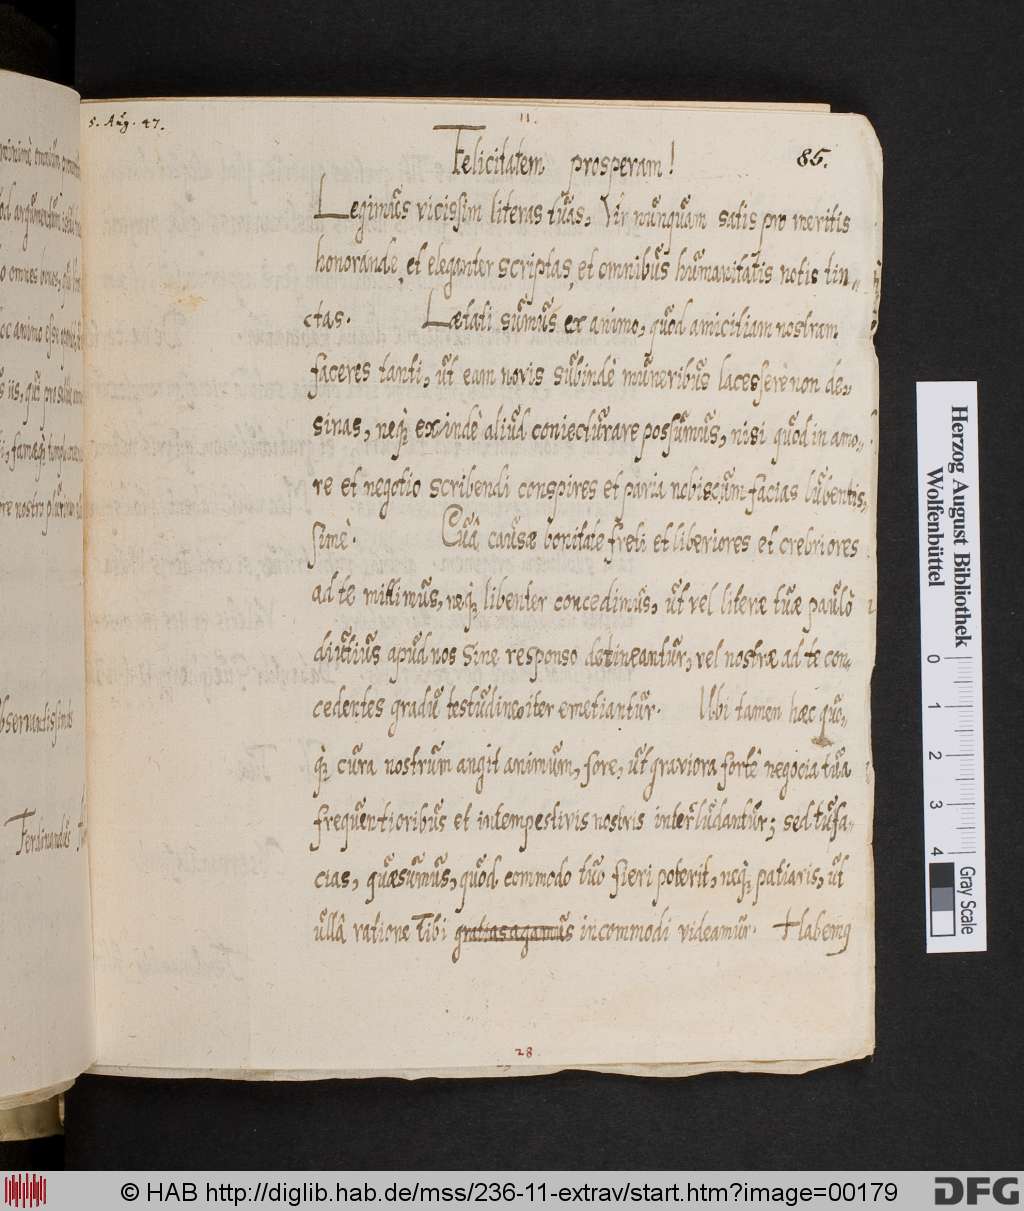 5. Aug. 47.
11.
85.
Felicitatem prosperam!
Legimus vicissim literas tuas, Vir nunquam satis pro meritis
honorande, et eleganter scriptas, et omnibus humanitatis notis tin-
ctas. Lætati sumus ex animo, quod amicitiam nostram
faceres tanti, ut eam novis subindè muneribus lacessere non de-
sinas, neq; exindè aliud coniecturare possumus, nisi quod in amo-
re et negotio scribendi conspires et paria nobiscum facias lubentis-
simè. Cuâ causæ bonitate freti et liberiores et crebriores
ad te mittimus, neq; libenter concedimus, ut vel literæ tuæ paulò
diutius apud nos sine responso detineantur, vel nostræ ad te con-
cedentes gradu testudineo iter emetiantur. Ubi tamen hæc quo-
q; cura nostrum angit animum, fore, ut graviora fortè negocia tua
frequentioribus et intempestivis nostris interludantur; sed tu fa-
cias, quæsumus, quod commodo tuo fieri poterit, neq; patiaris, ut
ullâ ratione Tibi gratias agamus incommodi videamur. Habemq
28
Ferdinandus
Herzog August Bibliothek
Wolfenbüttel
0 1 2 3 4
Gray Scale
© HAB http://diglib.hab.de/mss/236-11-extrav/start.htm?image=00179
DFG